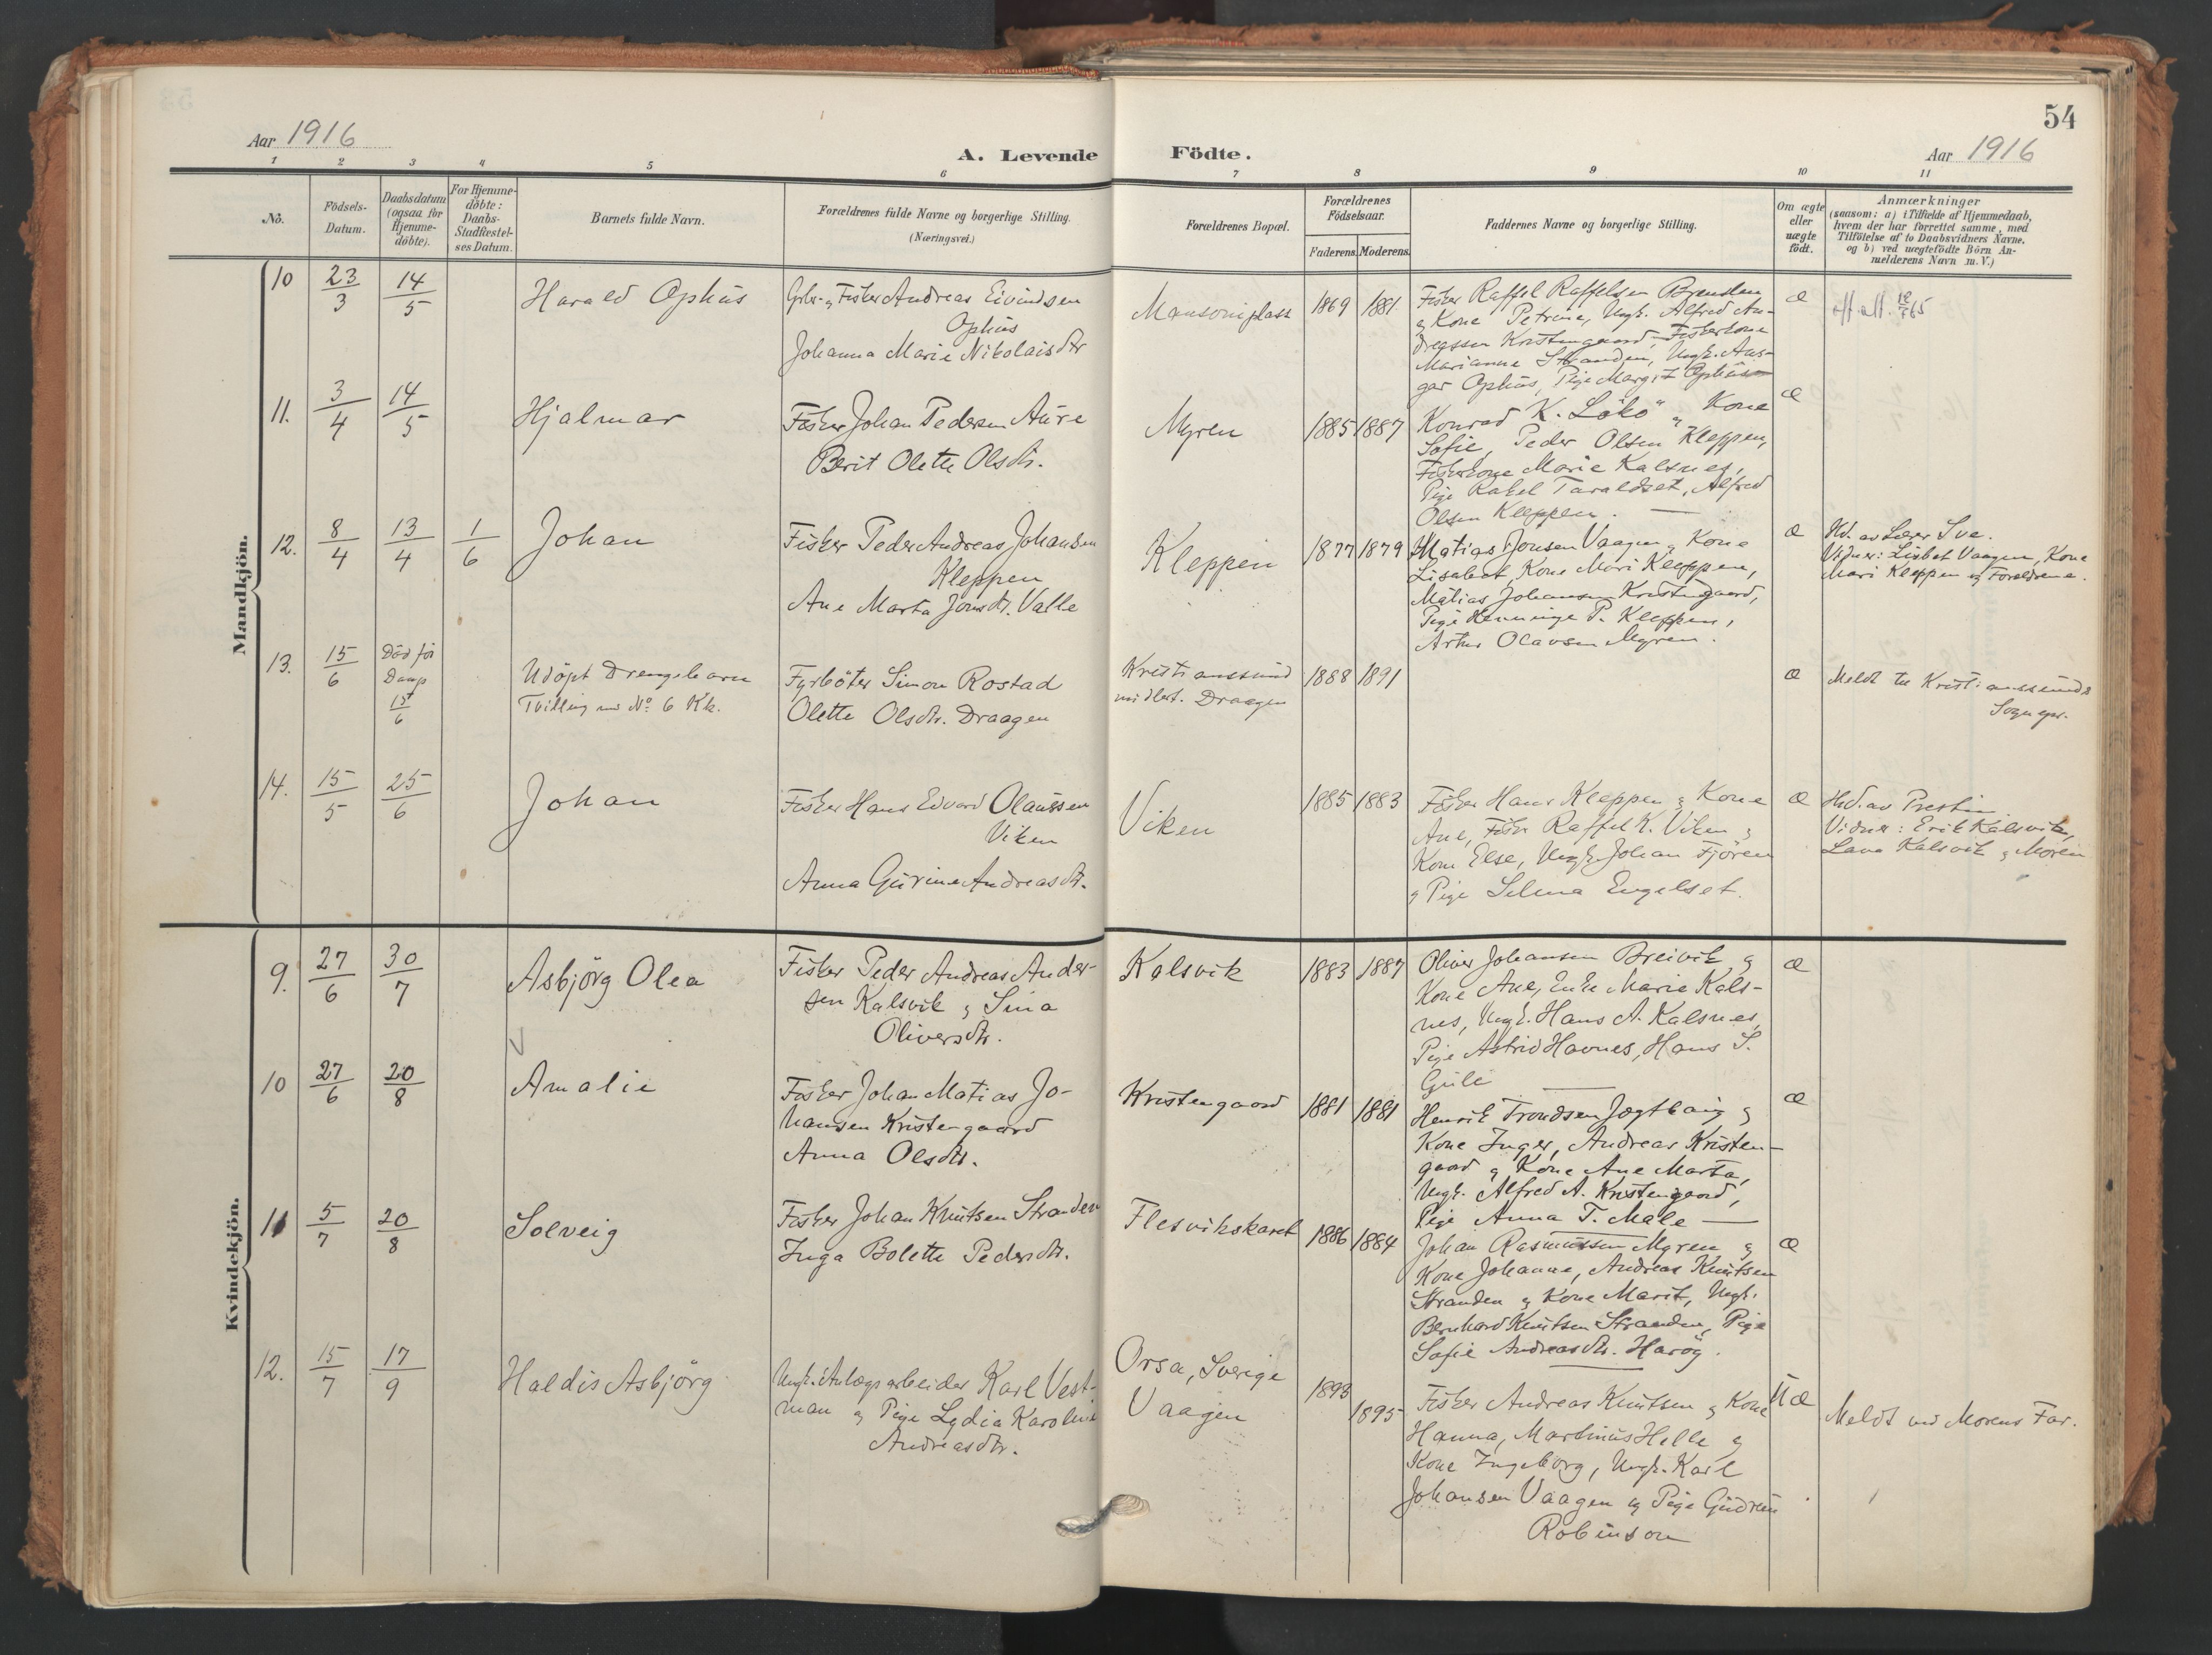 54
Aar 1916
A. Levende Födte.
Aar 1916
1 2 3 4 5 6 7 8 9 10 11
No.
Födsels-Datum.
Daabsdatum (ogsaa for Hjemme-döbte).
For Hjemme-döbte: Daabs-Stadfæstel-ses Datum.
Barnets fulde Navn.
Forældrenes fulde Navne og borgerlige Stilling. (Næringsvei.)
Forældrenes Bopæl.
Forældrenes Födselsaar.
Faderens. Moderens.
Faddernes Navne og borgerlige Stilling.
Om ægte eller uægte födt.
Anmærkninger
(saasom: a) i Tilfælde af Hjemmedaab,
hvem der har forrettet samme, med
Tilföielse af to Daabsvidners Navne,
og b) ved uægtefödte Börn An-
melderens Navn m. V.)
Mandkjön.
10 23/3 14/5 Harald Ophüs
Andreas Eivindsen
Ophüs
Johanna Marie Nikolaisdtr
1869 1881
Fisker Raffel Raffelsen
og Kone Petrine, Ungk. Alfred An-
dreassen Kristengaard, Fiskerkone
Marianne Stranden, Ungk. Ans-
gar Ophüs, Pige Margit Ophüs
Æ
11. 3/4 14/5 Hjalmar
Fisker Johan Pedersen Aüre
Berit Olette Olsdtr.
Myren
1885 1887
Konrad K. Lökö og Kone
Sofie, Peder Olsen Kleppen,
Fiskerkone Marie Kalsnes,
Pige Rakel Taraldset, Alfred
Olsen Kleppen.
Æ
12. 8/4 13/4 1/6 Johan
Fisker Peder Andreas Johansen
Kleppen
Ane Marta Jonsdtr. Valle
Kleppen
1877 1879
Matias Jonsen Vaagen og Kone
Lisabet, Kone Mari Kleppen,
Matias Johansen Kristengaard,
Pige Henninge P. Kleppen,
Artur Olavsen Myren.
Æ
Hd. av Lærer Sve.
Vidner: Lisbet Vaagen, Kone
Mari Kleppen og Forældrene.
13. 15/6 Död før
Daap
15/6
Udöpt Drengebarn
Tvilling med No. 6 Kk.
Fyrböter Simon Rostad
Olette Olsdtr. Draagen
Kristianssund
midlert. Draagen
1888 1891
Æ
Meldt til Kristianssunds
Sognepr.
14. 15/5 25/6 Johan
Fisker Hans Edvard Olaussen
Viken
Anna Gürine Andreasdtr.
Viken
1885 1883
Fisker Hans Kleppen og Kone
Ane, Fisker Raffel K. Viken og
Kone Else, Ungk. Johan Fjören
og Pige Selma Engelset.
Æ
Hd. av Presten
Vidner: Erik Kalsvik,
Lava Kalsvik og Moren
Kvindekjön.
9. 27/6 30/7 Asbjörg Olea
Fisker Peder Andreas Ander-
sen Kalsvik og Sina
Oliversdtr.
Kalsvik
1883 1887
Oliver Johansen Breivik og
Kone Ane, Enke Marie Kals-
nes, Ungk. Hans A. Kalsnes,
Pige Astrid Havnes, Hans S.
Gule
Æ
10 27/6 20/8 Amalie
Fisker Johan Matias Jo-
hansen Kristengaard
Anna Olsdtr.
Kristengaard
1881 1881
Henrik Trondsen Jægtbaug og
Kone Inger, Andreas Kristen-
gaard og Kone Ane Marta,
Ungk. Alfred A. Kristengaard,
Pige Anna T. Male
Æ
11 5/7 20/8 Solveig
Fisker Johan Knutsen Stranden
Inga Bolette Pedersdtr.
Flesvikskaret
1886 1884
Johan Rasmussen Myren og
Kone Johanne, Andreas Knutsen
Stranden og Kone Marit, Ungk.
Bernhard Knutsen Stranden, Pige
Sofie Andreasdtr. Haröy.
Æ
12. 15/7 17/9 Haldis Asbjörg
Ungk. Anlægsarbeider Karl Vest-
man og Pige Lydia Karoline
Andreasdtr.
Orsa, Sverige
Vaagen
1893
1895
Fisker Andreas Knutsen og Kone
Hanna, Martinus Helle og
Kone Ingeborg, Ungk. Karl
Johansen Vaagen og Pige Güdrün
Robinson
UÆ
Meldt ved Morens Far.